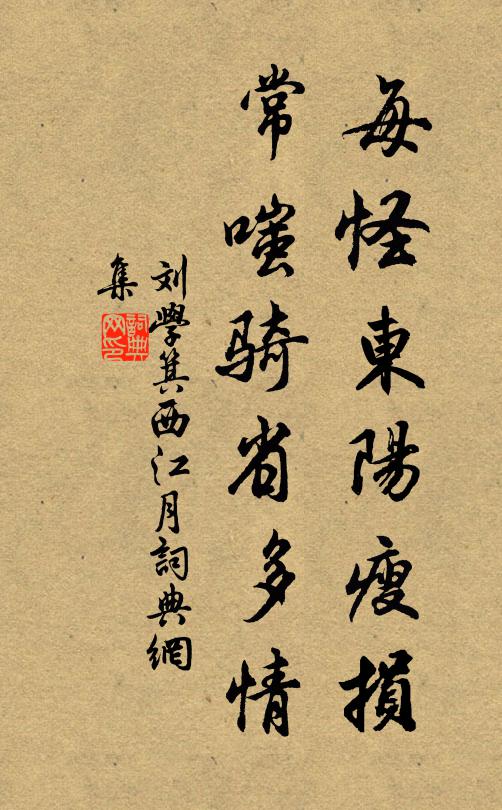 每怪東陽瘦損
常嗤騎省多情
刘學箕西江月詞典網
集
詞典网印